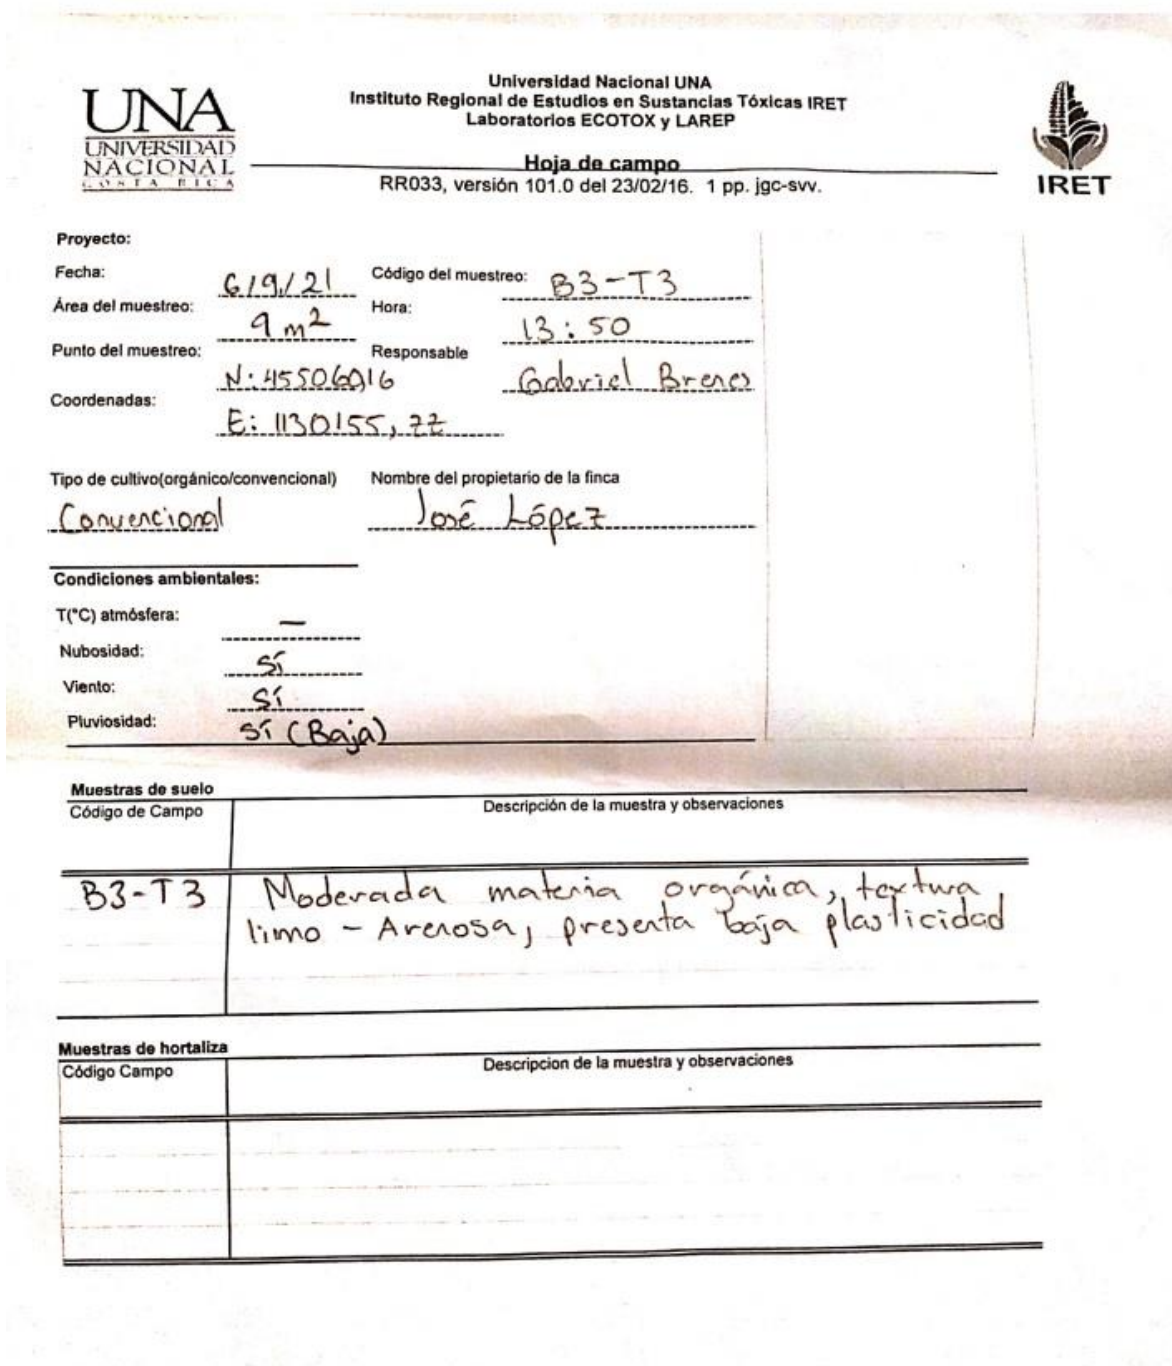 UNA
UNIVERSIDAD
NACIONAL
COSTA RICA
Universidad Nacional UNA
Instituto Regional de Estudios en Sustancias Tóxicas IRET
Laboratorios ECOTOX y LAREP
Hoja de campo
RR033, versión 101.0 del 23/02/16. 1 pp. jgc-svv.
IRET
Proyecto:
Fecha: 6/9/21 Código del muestreo: B3-T3
Área del muestreo: 9 m2 Hora: 13:50
Punto del muestreo: Responsable Gabriel Brenes
N: 45506016
Coordenadas:
E: 1130155,77
Tipo de cultivo(orgánico/convencional) Nombre del propietario de la finca
Convencional José López
Condiciones ambientales:
T(°C) atmósfera: —
Nubosidad: Sí
Viento: Sí
Pluviosidad: Sí (Baja)
Muestras de suelo
Código de Campo Descripción de la muestra y observaciones
B3-T3 Moderada materia orgánica, textura
limo - Arenosa, presenta baja plasticidad
Muestras de hortaliza
Código Campo Descripcion de la muestra y observaciones